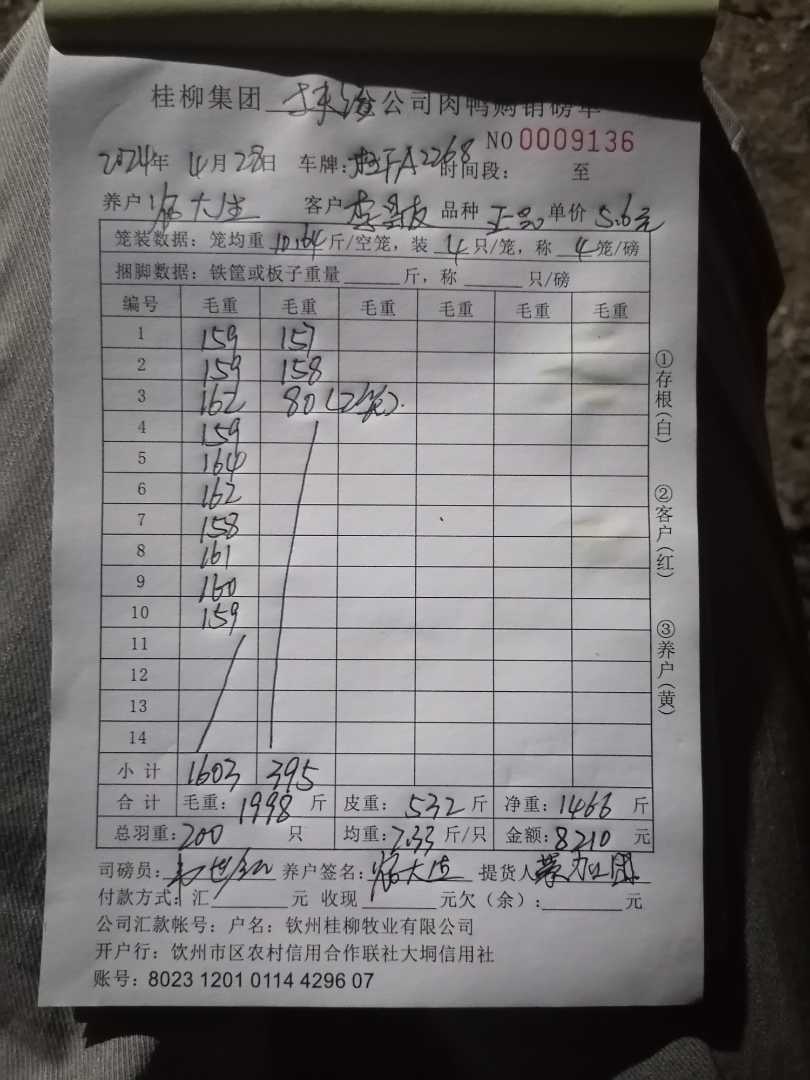 桂柳集团 公司肉鸭购销磅单
NO 0009136
2024年 4月28日 车牌：桂FA2268 时间段： 至
养户 大 客户 李 友 品种 正品 单价 5.6元
笼装数据：笼均重 10.64 斤/空笼，装 4 只/笼，称 4 笼/磅
捆脚数据：铁筐或板子重量 斤，称 只/磅
编号 毛重 毛重 毛重 毛重 毛重 毛重
1 159 157
2 159 158
3 162 80（2笼）.
4 159
5 164
6 162
7 158
8 161
9 160
10 159
11
12
13
14
小计 1603 395
合计 毛重：1998 斤 皮重：532 斤 净重：1466 斤
总羽重：200 只 均重：7.33 斤/只 金额：8210 元
司磅员： 养户签名： 大 提货人
付款方式：汇 元 收现 元欠（余）： 元
公司汇款帐号：户名：钦州桂柳牧业有限公司
开户行：饮州市区农村信用合作联社大垌信用社
账号：8023 1201 0114 4296 07
①存根（白）
②客户（红）
③养户（黄）